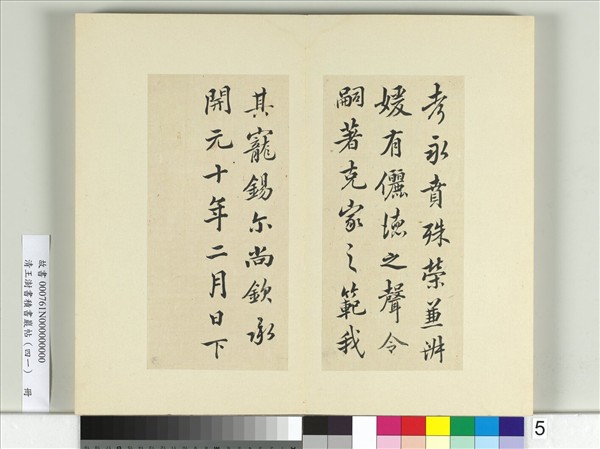 考永賁殊榮並辨
媛有儷德之聲令
嗣著克家之範我
其寵錫尓尚欽承
開元十年二月日下
故書 000761N000000000
清王澍書積書巖帖（四一） 冊
5